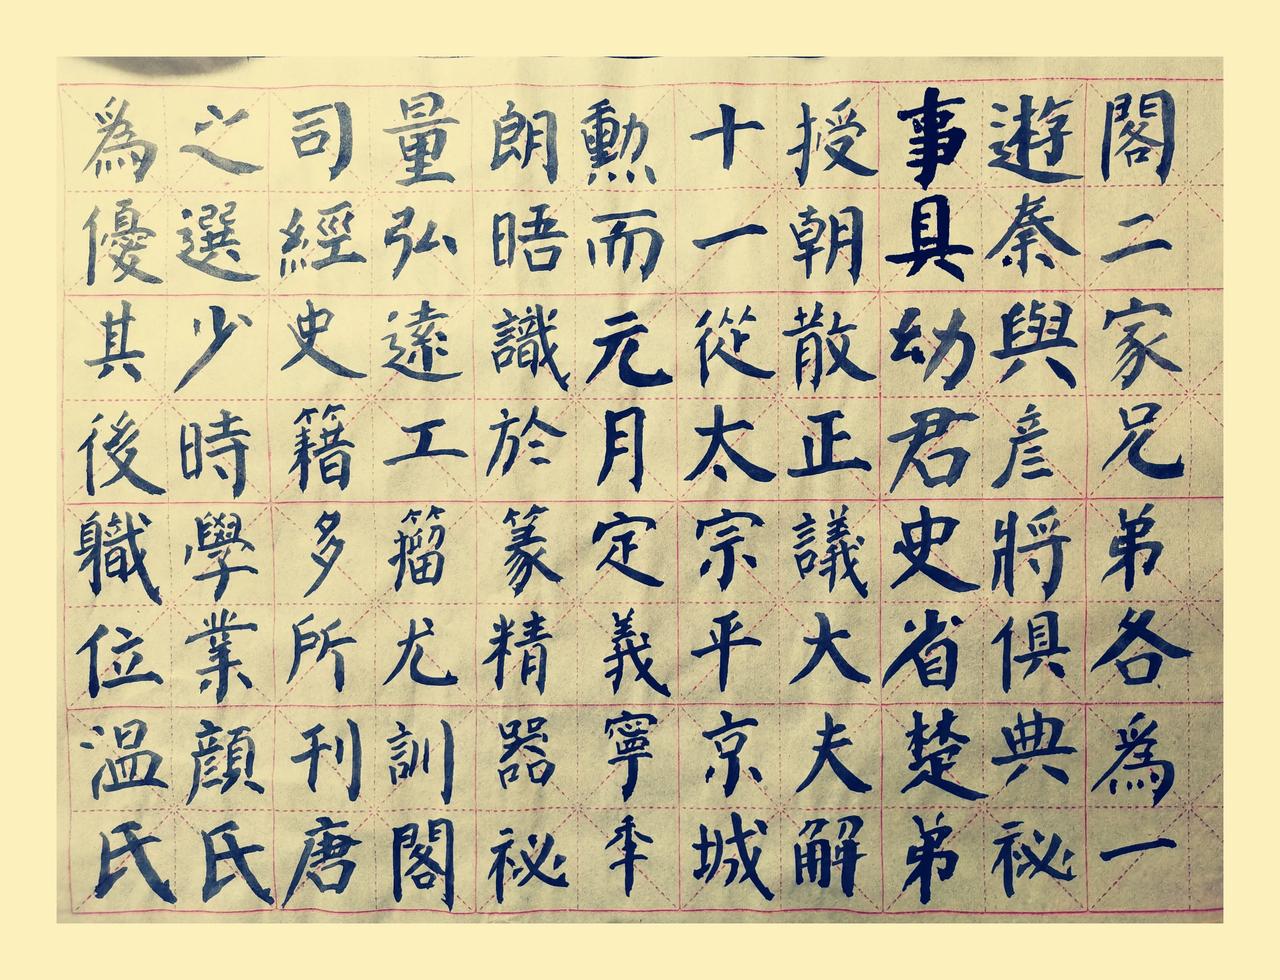 閣二家兄弟各為一
遊秦與彥將俱典祕
事具幼君史省楚弟
授朝散正議大夫解
十一從太宗平京城
勳而元月定義寧季
朗晤識於篆精器祕
量弘遠工籀尤訓閣
司經史籍多所刊唐
之選少時學業顏氏
為優其後職位温氏